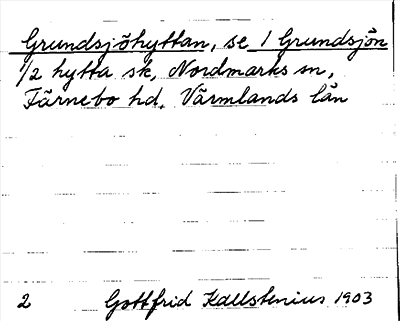 Grundsjöhyttan, se 1 Grundsjön
1/2 hytta sk, Nordmarks sn,
Färnebo hd, Värmlands län
2 Gottfrid Kallstenius 1903